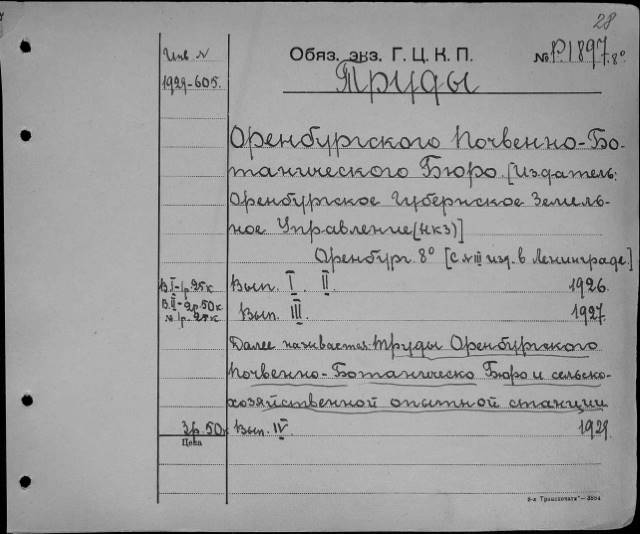 28
Инв N
Обяз. экз. Г. Ц. К. П.
№ Р.1897.8°
1929-605.
Труды
Оренбургского Почвенно-Бо-
танического Бюро. [Издатель:
Оренбургское Губернское Земель-
ное Управление(НКЗ)]
Оренбург. 8° [С № III изд. в Ленинграде.]
В.I-1р.25к Вып. I. II. 1926.
В.II-2р.50к
№ 1р.25к Вып. III 1927.
Далее называется: Труды Оренбургского
Почвенно-Ботаническо Бюро и сельско-
хозяйственной опытной станции
3р.50к Вып. IV. 1929.
Цена
8-я „Транспечати“—3554